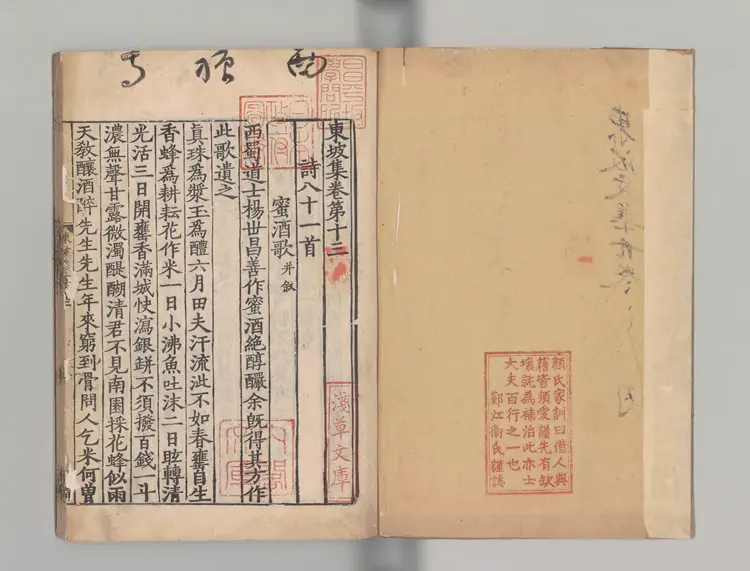 顔氏家訓曰借人典
籍皆須愛護先有缺
壞就為補治此亦士
大夫百行之一也
鄞江衛氏謹誌
東坡集卷第十三
詩八十一首
蜜酒歌 并敘
西蜀道士楊世昌善作蜜酒絶醇釅余旣得其方作
此歌遺之
真珠爲漿玉爲醴六月田夫汗流泚不如春甕自生
香蜂爲耕耘花作米一日小沸魚吐沫二日眩轉清
光活三日開甕香滿城快瀉銀缾不須撥百錢一斗
濃無聲甘露微濁醍醐清君不見南園採花蜂似雨
天敎釀酒醉先生先生年來窮到骨問人乞米何曽
淺草文庫